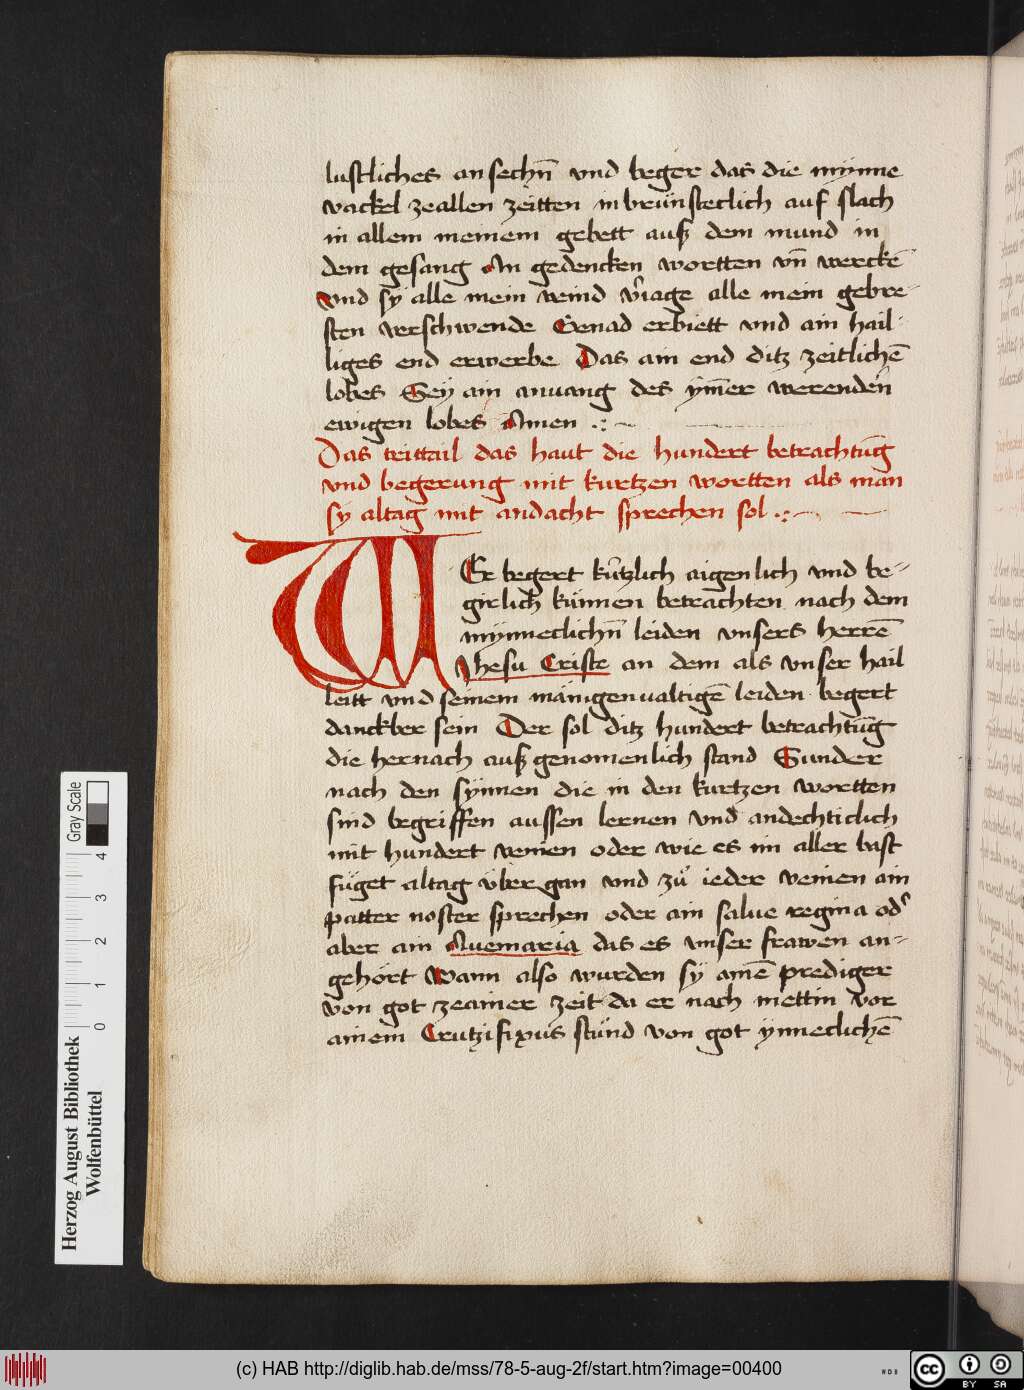 lustliches an sechn̄ vnd beger das die mÿnne
vackel zeallen zeitten in brúnsteclich auf slach
in allem meinem gebett auß dem mund in
dem gesang An gedencken wortten vn̄ werckē
vnd sÿ alle mein veind v̄iage alle mein gebre-
sten verschwende Genad erbiett vnd ain hail-
liges end erwerbe Das ain end ditz zeitlichē
lobes Seÿ ain anuang des ÿm̄er werendēn
ewigen lobes Amen
Das trittail das haut die hundert betrachtūg
vnd begerung mit kurtzen wortten als man
sÿ altag mit andacht sprechen sol
WEr begert kūtzlich aigenlich vnd be-
girlich künnen betrachten nach dem
mÿnneclichn̄ leiden vnsers herrē
Jhesu Criste an dem als vnser hail
leitt vnd seinem mänigenualtigē leiden begert
danckber sein Der sol ditz hundert betrachtūg
die hernach auß genomenlich stand Sunder
nach den sÿnnen die in den kurtzen wortten
sind begriffen aussen lernen vnd andechticlich
mit hundert venien oder wie es im aller bast
füget altag über gan vnd zů ieder venien ain
patter noster sprechen oder ain salue regina od᾽
aber ain Auemaria das es vnser frawen an-
gehört Wann also wurden sÿ ainē prediger
von got zeainer zeit da er nach mettin vor
ainem Crutzifixus stůnd von got ÿnneclichē
Herzog August Bibliothek
Wolfenbüttel
0 1 2 3 4
Gray Scale
(c) HAB http://diglib.hab.de/mss/78-5-aug-2f/start.htm?image=00400
cc BY SA